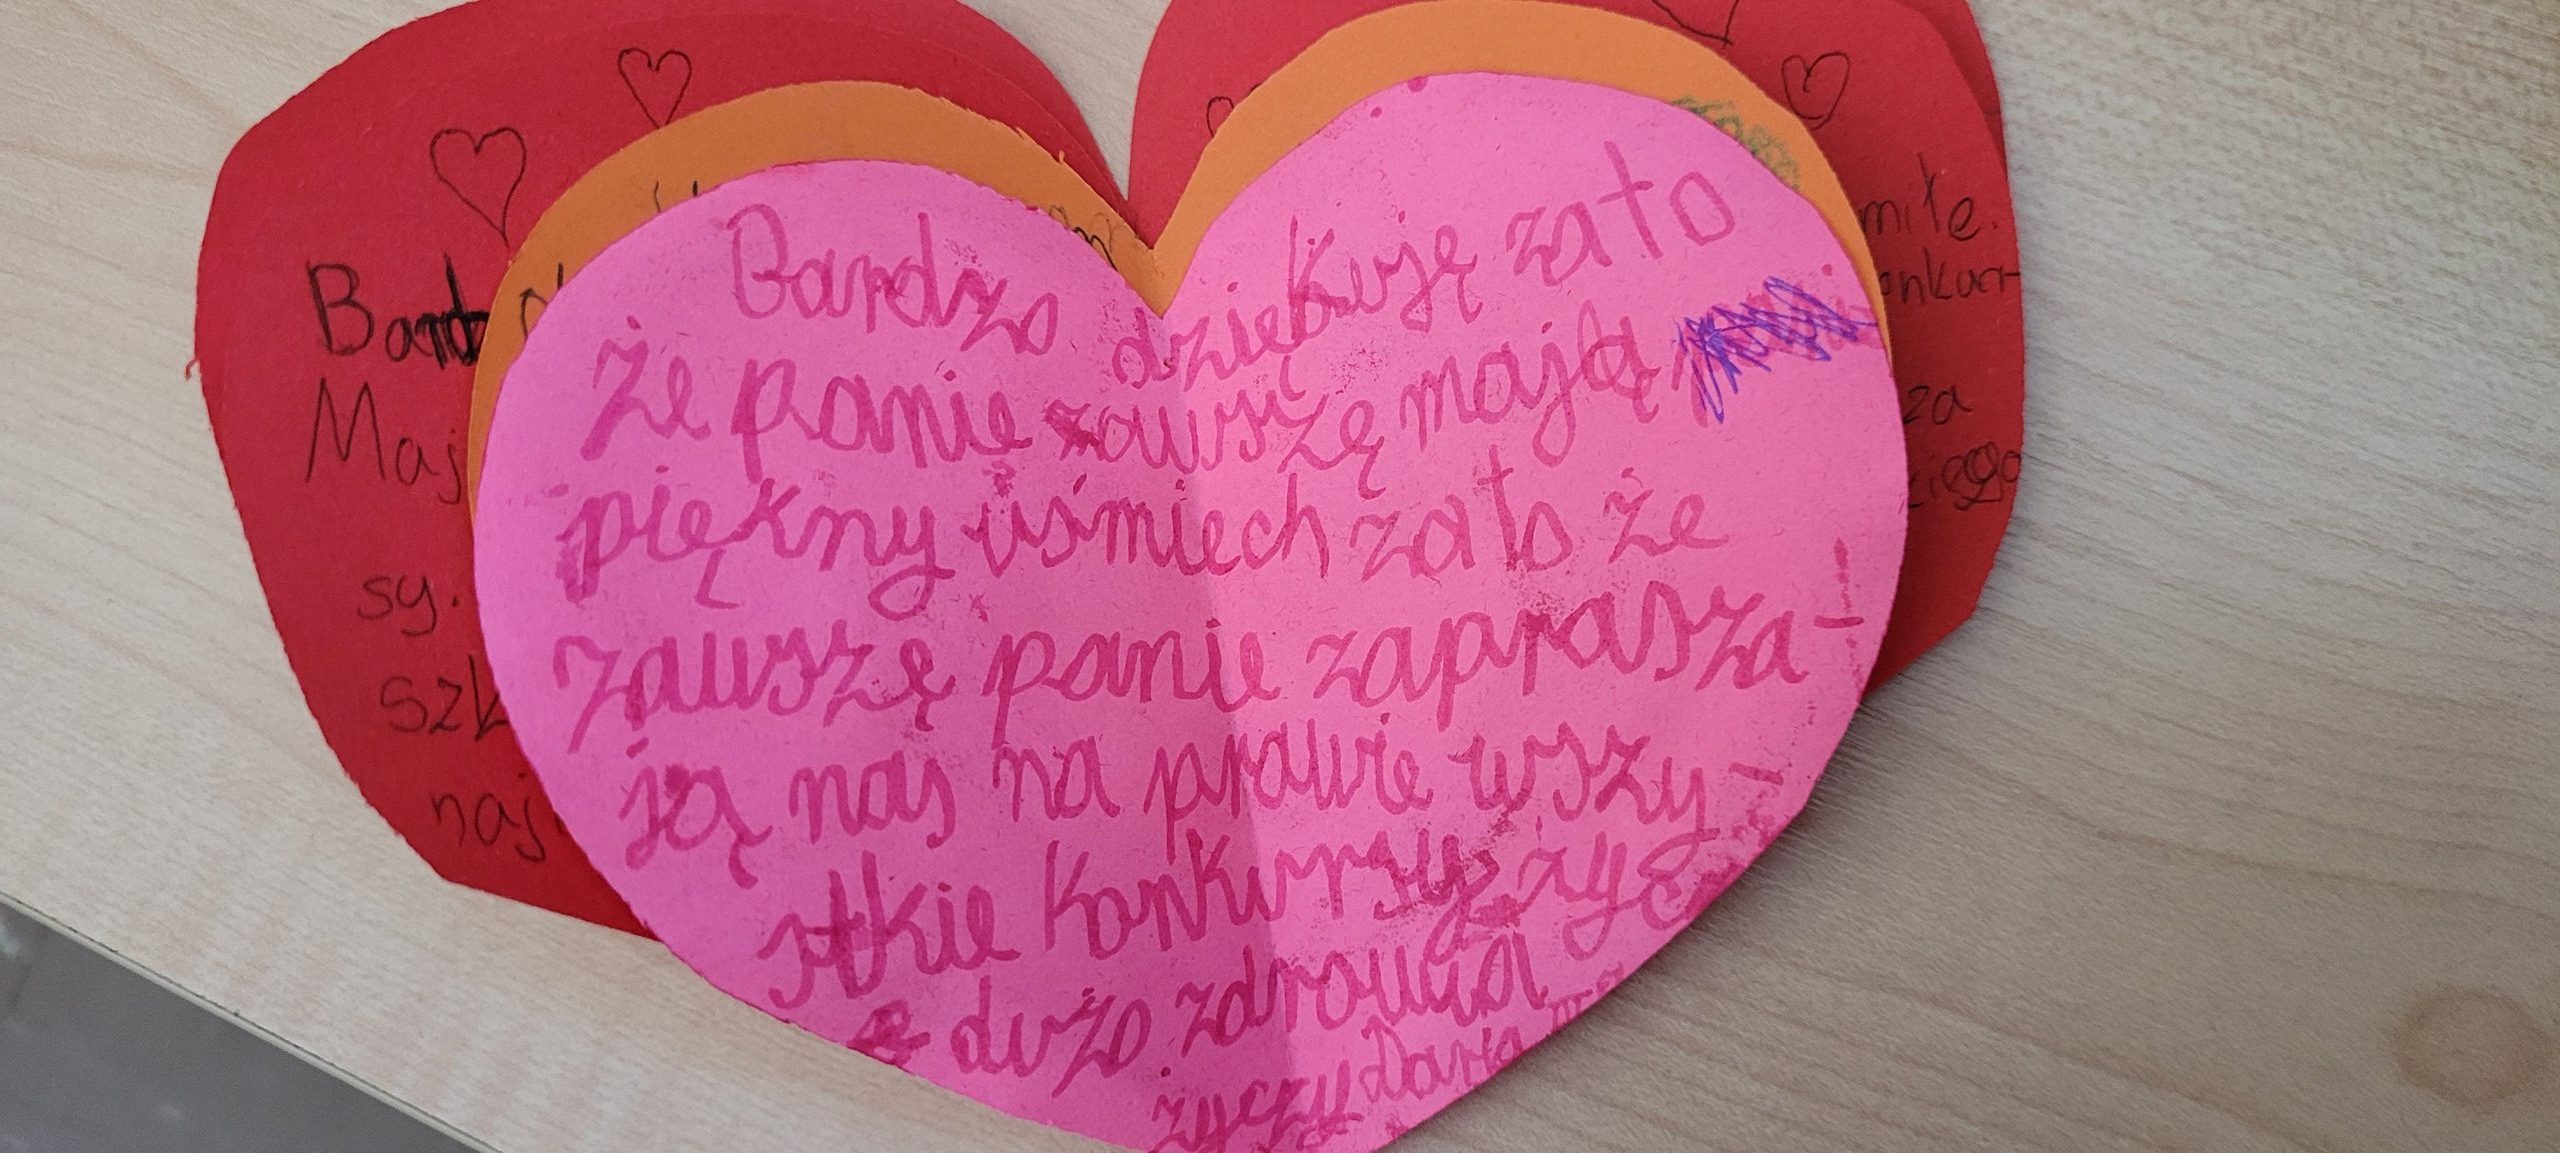 Bardzo dziękuję za to
że panie zawszę mają
piękny uśmiech za to że
zawszę panie zaprasza-
ją nas na prawie wszy-
stkie konkursy, życ
dużo zdrowia
życzy Daria
Maj
sy.
szk
naj
miłe.
onkur-
za
kiego